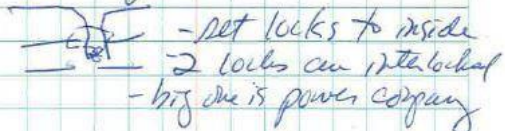 - set locks to inside
- 2 locks are interlocked
- big one is power company